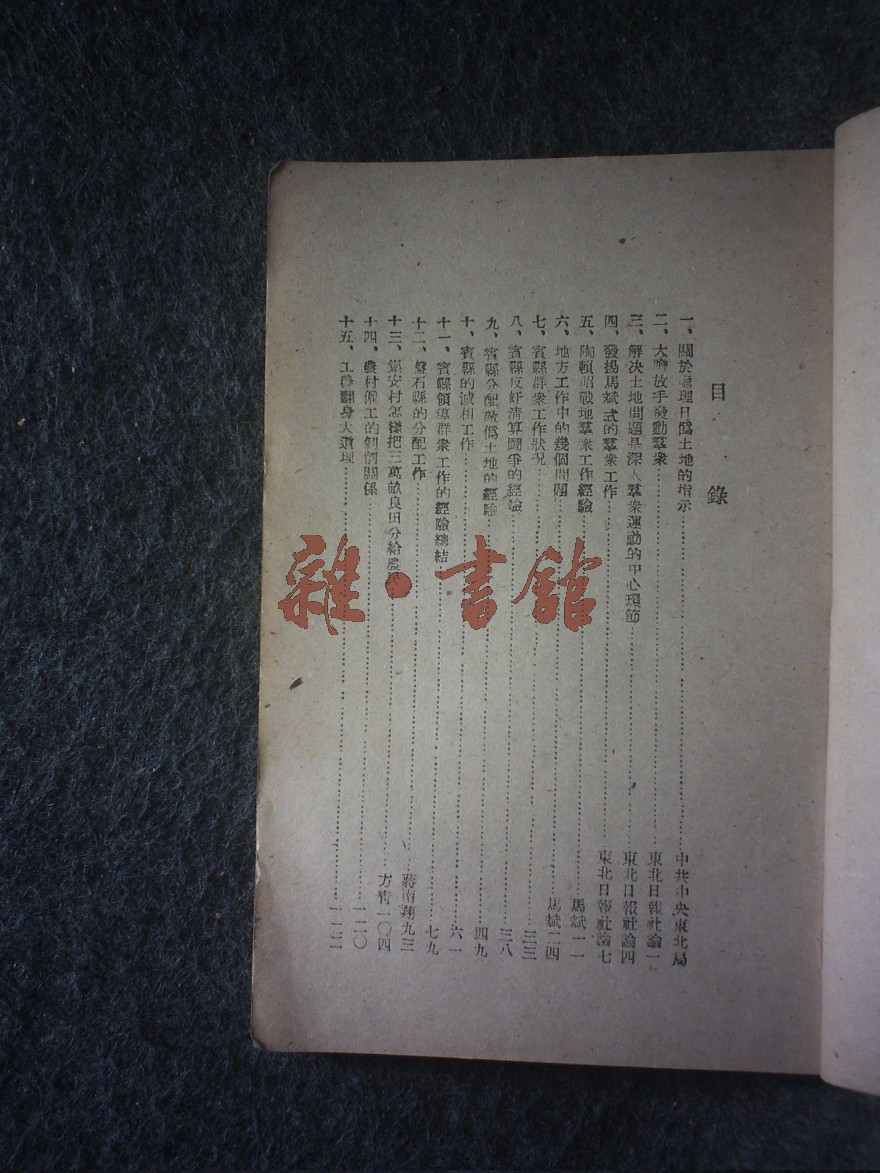 目錄
一、關於處理日僞土地的指示……中共中央東北局
二、大膽放手發動羣衆……東北日報社論一
三、解決土地問題是深入羣衆運動的中心環節……東北日報社論四
四、發揚馬斌式的羣衆工作……東北日報社論七
五、陶賴昭戰地羣衆工作經驗……馬斌一一
六、地方工作中的幾個問題……馬斌二四
七、賓縣群衆工作狀況……三三
八、賓縣反奸清算鬪爭的經驗……三八
九、賓縣分配敵僞土地的經驗……四九
十、賓縣的減租工作……六一
十一、賓縣領導群衆工作的經驗總結……七九
十二、盤石縣的分配工作……蔣南翔九三
十三、鎭安村怎樣把三萬畝良田分給農……方靑一〇四
十四、農村僱工的剝削關係……一二〇
十五、工農翻身大道理……一二二
雜·書館